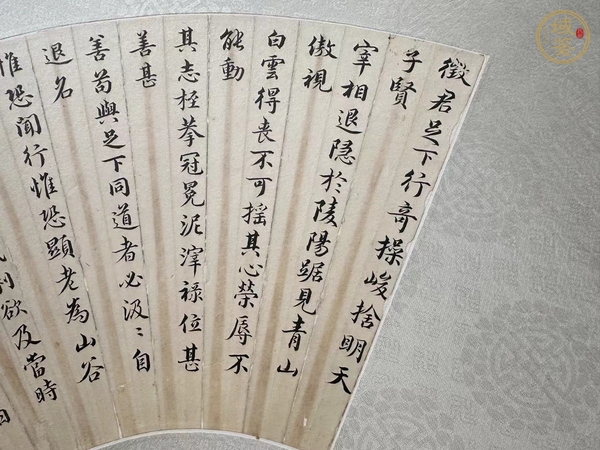 徵君足下行奇操峻捨明天
子賢
宰相退隱於陵陽踞見青山
傲視
白雲得喪不可搖其心榮辱不
能動
其志桎拲冠冕泥滓祿位甚
善甚
善苟與足下同道者必汲〻自
退名
惟恐聞行惟恐顯老為山谷
欲及當時